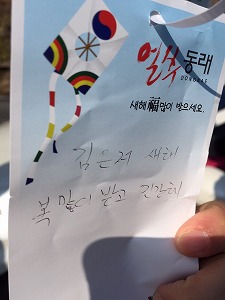 열쑥 동래
DONGRAE
새해 福많이 받으세요.
김은저 새해
복 많이 받고 건강해